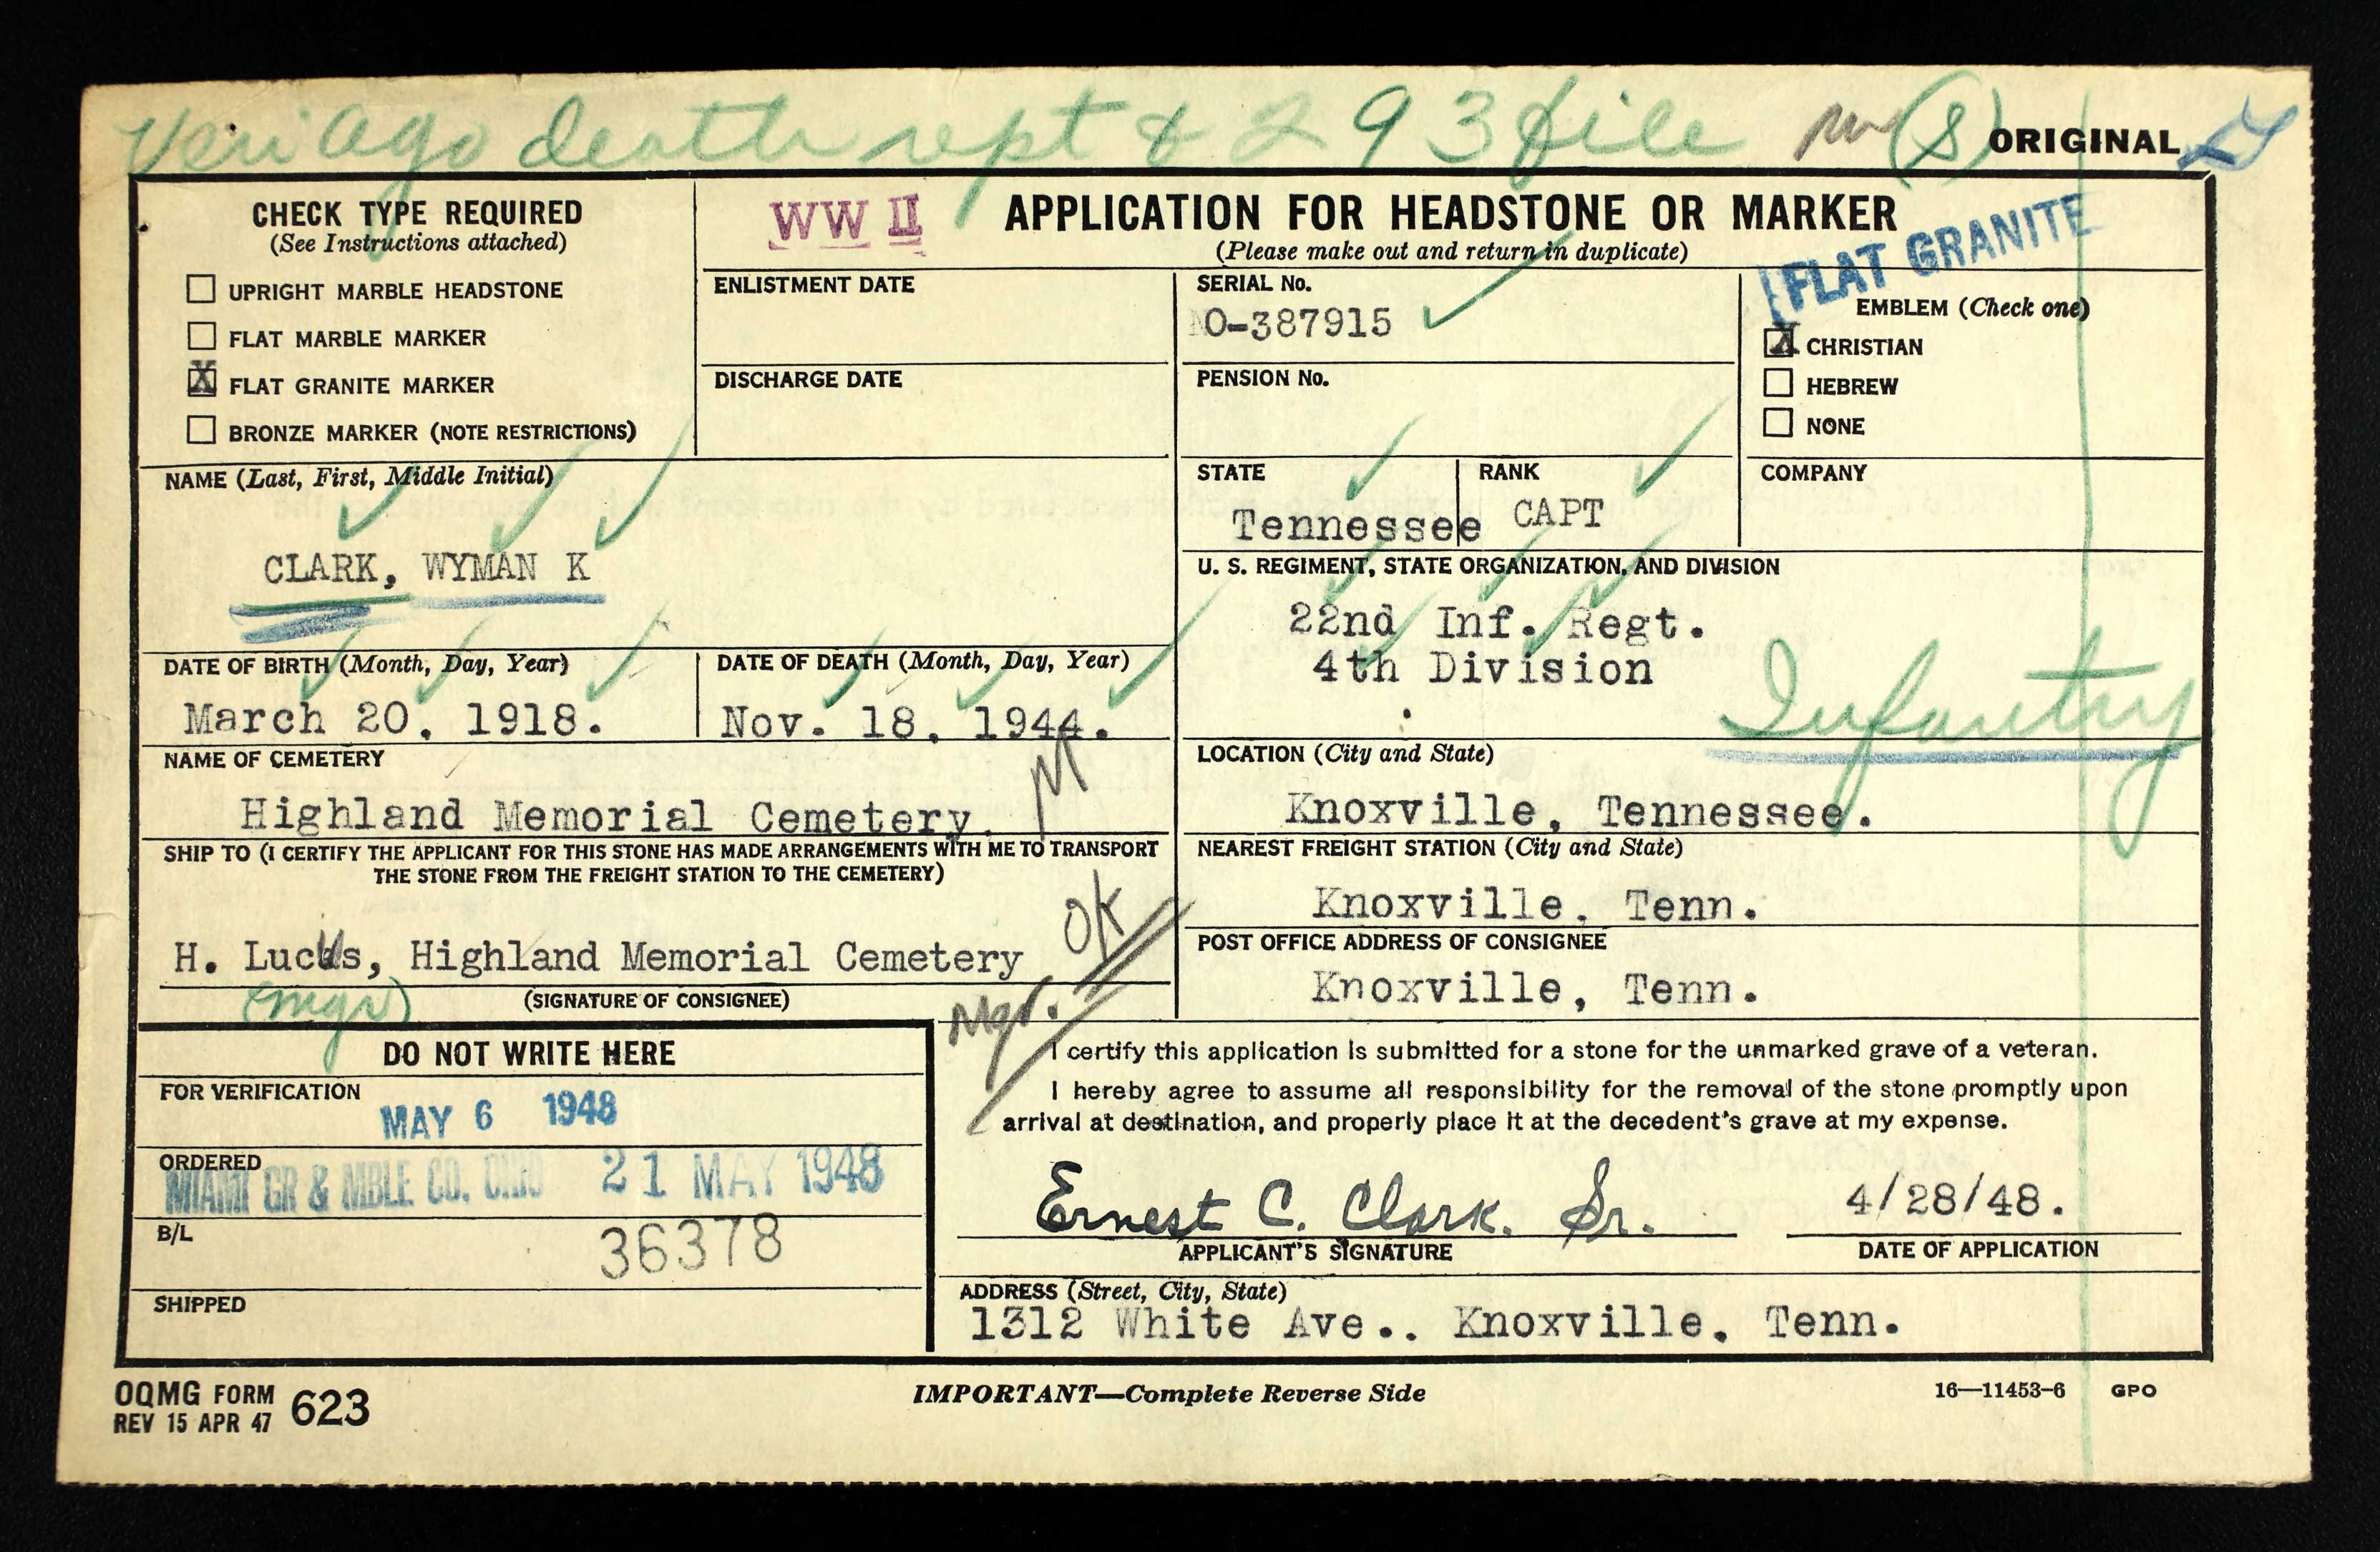 Veri Ago death rept & 293 file
(S) ORIGINAL
CHECK TYPE REQUIRED
(See Instructions attached)
UPRIGHT MARBLE HEADSTONE
FLAT MARBLE MARKER
X FLAT GRANITE MARKER
BRONZE MARKER (NOTE RESTRICTIONS)
WW II
APPLICATION FOR HEADSTONE OR MARKER
(Please make out and return in duplicate)
FLAT GRANITE
ENLISTMENT DATE
DISCHARGE DATE
SERIAL No.
O-387915
PENSION No.
EMBLEM (Check one)
X CHRISTIAN
HEBREW
NONE
NAME (Last, First, Middle Initial)
CLARK, WYMAN K
STATE
Tennessee
RANK
CAPT
COMPANY
U. S. REGIMENT, STATE ORGANIZATION, AND DIVISION
22nd Inf. Regt.
4th Division
Infantry
DATE OF BIRTH (Month, Day, Year)
March 20, 1918.
DATE OF DEATH (Month, Day, Year)
Nov. 18, 1944.
NAME OF CEMETERY
Highland Memorial Cemetery.
M
LOCATION (City and State)
Knoxville, Tennessee.
SHIP TO (I CERTIFY THE APPLICANT FOR THIS STONE HAS MADE ARRANGEMENTS WITH ME TO TRANSPORT
THE STONE FROM THE FREIGHT STATION TO THE CEMETERY)
H. Lucus, Highland Memorial Cemetery
(mgr)
(SIGNATURE OF CONSIGNEE)
OK
Mgr.
NEAREST FREIGHT STATION (City and State)
Knoxville, Tenn.
POST OFFICE ADDRESS OF CONSIGNEE
Knoxville, Tenn.
DO NOT WRITE HERE
FOR VERIFICATION
MAY 6 1948
ORDERED
MIAMI GR & MBLE CO. OHIO 21 MAY 1948
B/L
36378
SHIPPED
I certify this application is submitted for a stone for the unmarked grave of a veteran.
I hereby agree to assume all responsibility for the removal of the stone promptly upon
arrival at destination, and properly place it at the decedent's grave at my expense.
Ernest C. Clark. Sr.
APPLICANT'S SIGNATURE
4/28/48.
DATE OF APPLICATION
ADDRESS (Street, City, State)
1312 White Ave., Knoxville, Tenn.
OQMG FORM 623
REV 15 APR 47
IMPORTANT—Complete Reverse Side
16—11453-6 GPO